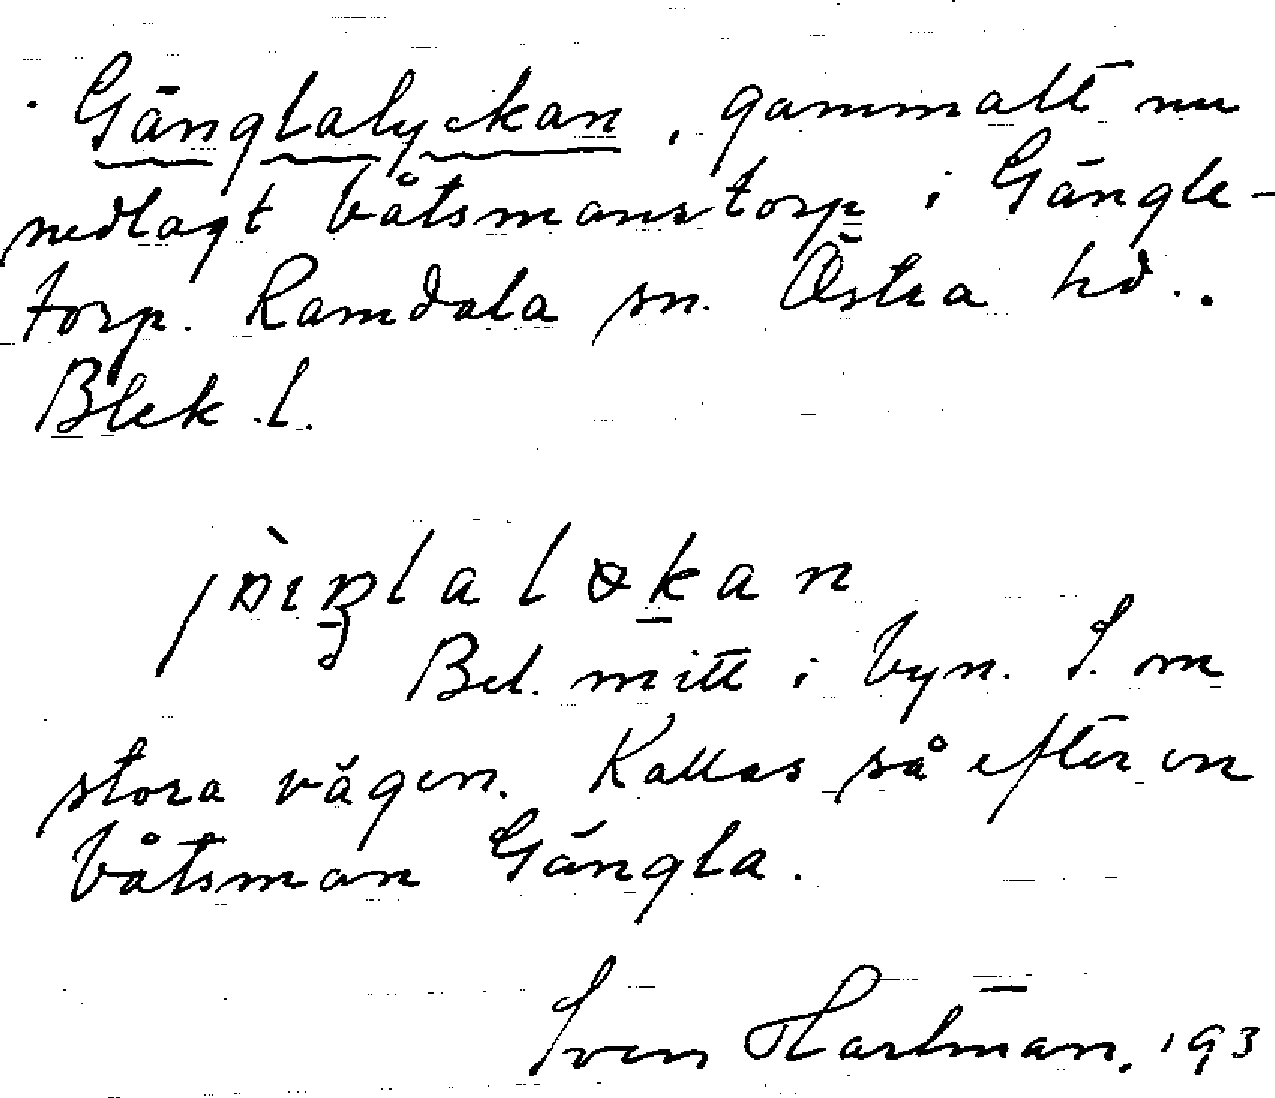 Gänglalyckan, gammalt nu
nedlagt båtsmanstorp i Gängle-
torp. Ramdala sn. Östra hd..
Blek. l.
Bel. mitt i byn. S. om
stora vägen. Kallas så efter en
båtsman Gängla.
Sven Hartman. 193